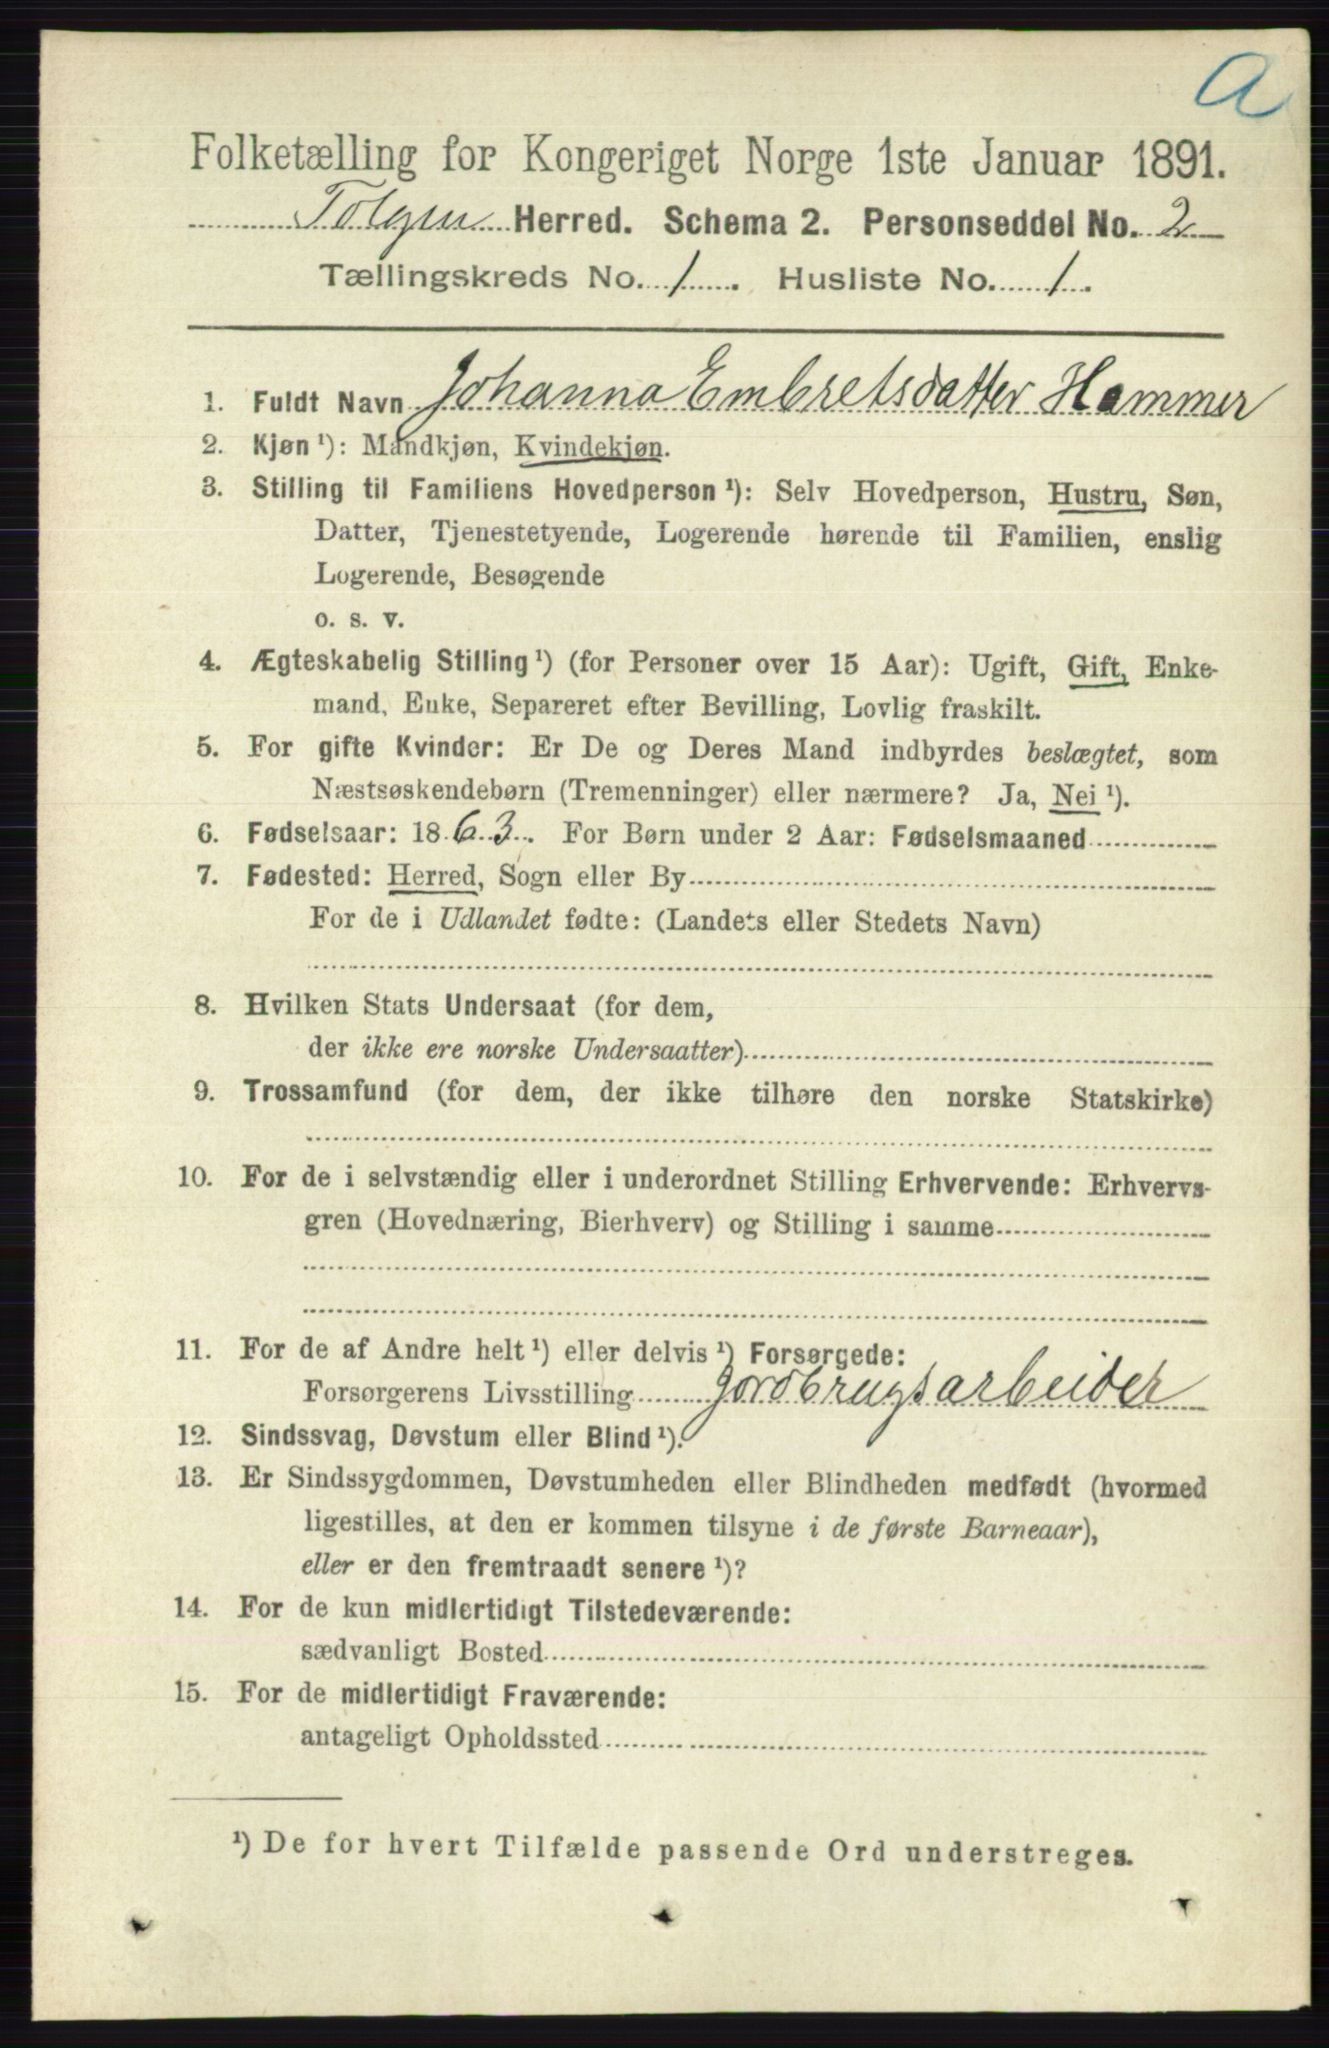 a
Folketælling for Kongeriget Norge 1ste Januar 1891.
Tolgen Herred. Schema 2. Personseddel No. 2
Tællingskreds No. 1. Husliste No. 1.
1. Fuldt Navn Johanna Embretsdatter Hammer
2. Kjøn ¹): Mandkjøn, Kvindekjøn.
3. Stilling til Familiens Hovedperson ¹): Selv Hovedperson, Hustru, Søn,
Datter, Tjenestetyende, Logerende hørende til Familien, enslig
Logerende, Besøgende
o. s. v.
4. Ægteskabelig Stilling ¹) (for Personer over 15 Aar): Ugift, Gift, Enke-
mand, Enke, Separeret efter Bevilling, Lovlig fraskilt.
5. For gifte Kvinder: Er De og Deres Mand indbyrdes beslægtet, som
Næstsøskendebørn (Tremenninger) eller nærmere? Ja, Nei ¹).
6. Fødselsaar: 1863. For Børn under 2 Aar: Fødselsmaaned
7. Fødested: Herred, Sogn eller By
For de i Udlandet fødte: (Landets eller Stedets Navn)
8. Hvilken Stats Undersaat (for dem,
der ikke ere norske Undersaatter)
9. Trossamfund (for dem, der ikke tilhøre den norske Statskirke)
10. For de i selvstændig eller i underordnet Stilling Erhvervende: Erhvervs-
gren (Hovednæring, Bierhverv) og Stilling i samme
11. For de af Andre helt ¹) eller delvis ¹) Forsørgede:
Forsørgerens Livsstilling Jordbrugsarbeider
12. Sindssvag, Døvstum eller Blind ¹).
13. Er Sindssygdommen, Døvstumheden eller Blindheden medfødt (hvormed
ligestilles, at den er kommen tilsyne i de første Barneaar),
eller er den fremtraadt senere ¹)?
14. For de kun midlertidigt Tilstedeværende:
sædvanligt Bosted
15. For de midlertidigt Fraværende:
antageligt Opholdssted
¹) De for hvert Tilfælde passende Ord understreges.